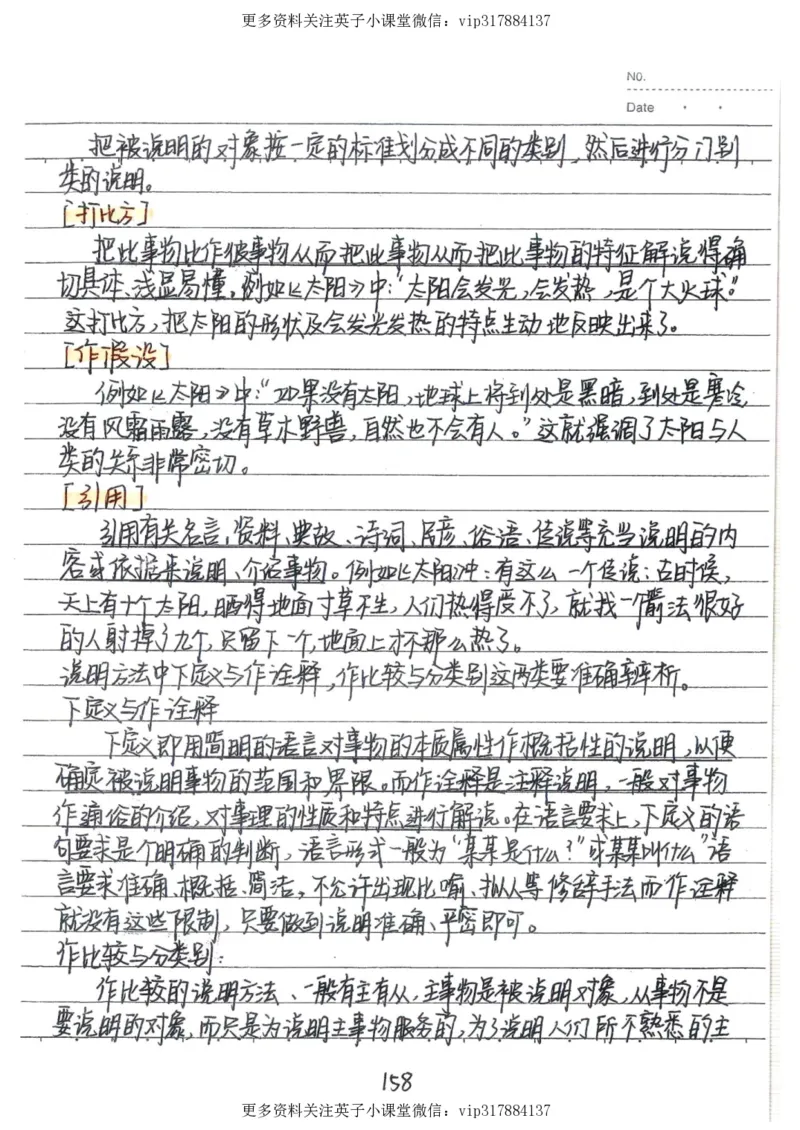 更多资料关注英子小课堂微信：vip317884137
No.
Date
把被说明的对象按一定的标准划分成不同的类别，然后进行分门别
类的说明。
[打比方]
把此事物比作彼事物从而把此事物从而把此事物的特征解说得确
切具体、浅显易懂，例如《太阳》中：“太阳会发光，会发热，是个大火球。”
这打比方，把太阳的形状及会发光发热的特点生动地反映出来了。
[作假设]
例如《太阳》中：“如果没有太阳，地球上将到处是黑暗，到处是寒冷
没有风霜雨露，没有草木野兽，自然也不会有人。”这就强调了太阳与人
类的关系非常密切。
[引用]
引用有关名言、资料、典故、诗词、民谚、俗语、传说等充当说明的内
容或依据来说明、介绍事物。例如《太阳》中：有这么一个传说：古时候，
天上有十个太阳，晒得地面寸草不生，人们热得受不了，就找一个箭法很好
的人射掉了九个，只留下一个，地面上才不那么热了。
说明方法中下定义与作诠释，作比较与分类别这两类要准确辨析。
下定义与作诠释
下定义即用简明的语言对事物的本质属性作概括性的说明，以便
确定被说明事物的范围和界限。而作诠释是注释说明，一般对事物
作通俗的介绍，对事理的性质和特点进行解说。在语言要求上，下定义的语
句要求是个明确的判断，语言形式一般为“某某是什么？”或某某叫什么”语
言要求准确、概括、简洁，不允许出现比喻、拟人等修辞手法而作诠释
就没有这些限制，只要做到说明准确、平密即可。
作比较与分类别：
作比较的说明方法、一般有主有从，主事物是被说明对象，从事物不是
要说明的对象，而只是为说明主事物服务的，为了说明人们所不熟悉的主
158
更多资料关注英子小课堂微信：vip317884137